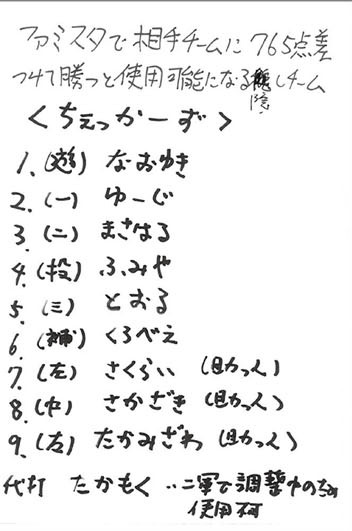 ファミスタで相手チームに765点差
つけて勝つと使用可能になる隠しチーム
＜ちぇっかーず＞
1.(遊) なおゆき
2.(一) ゆーじ
3.(二) まさはる
4.(投) ふみや
5.(三) とおる
6.(捕) くろべえ
7.(左) さくらい (助っ人)
8.(中) さかざき (助っ人)
9.(右) たかみざわ (助っ人)
代打 たかもく ‥二軍で調整中の為
使用不可